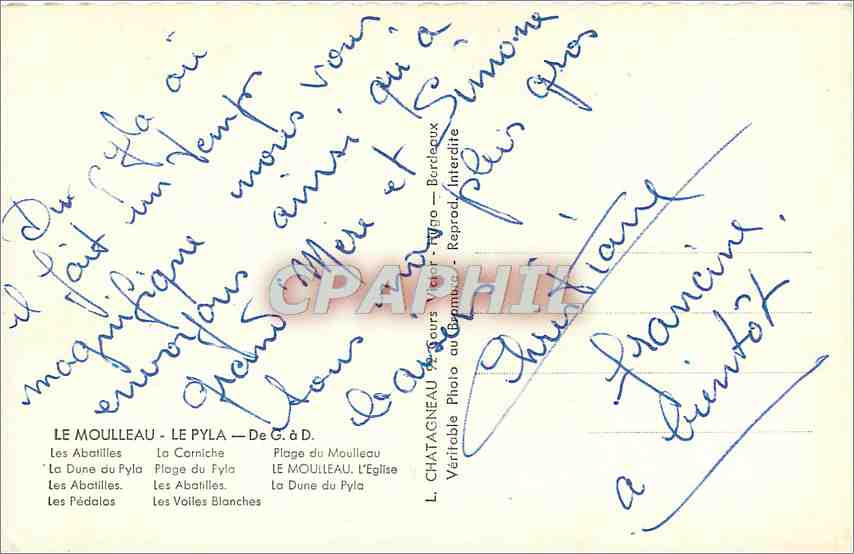 Du Pyla où
il fait un temps
magnifique nous vous
envoyons ainsi qu'à
grand Mère et Simone
tous nos plus gros
baisers
Christiane
Francine.
a bientôt
CPAPHIL
LE MOULLEAU - LE PYLA — De G. à D.
Les Abatilles La Corniche Plage du Moulleau
La Dune du Pyla Plage du Pyla LE MOULLEAU. L'Eglise
Les Abatilles. Les Abatilles. La Dune du Pyla
Les Pédalos Les Voiles Blanches
L. CHATAGNEAU Cours Victor-Hugo — Bordeaux
Véritable Photo au Bromure - Reprod. Interdite